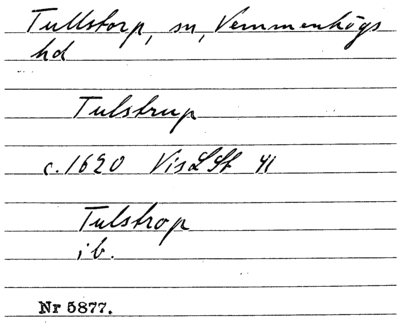 Tullstorp, sn, Vemmenhögs
hd
Tulstrup
c. 1620 Vis L St 41
Tulstrop
ib.
Nr 5877.